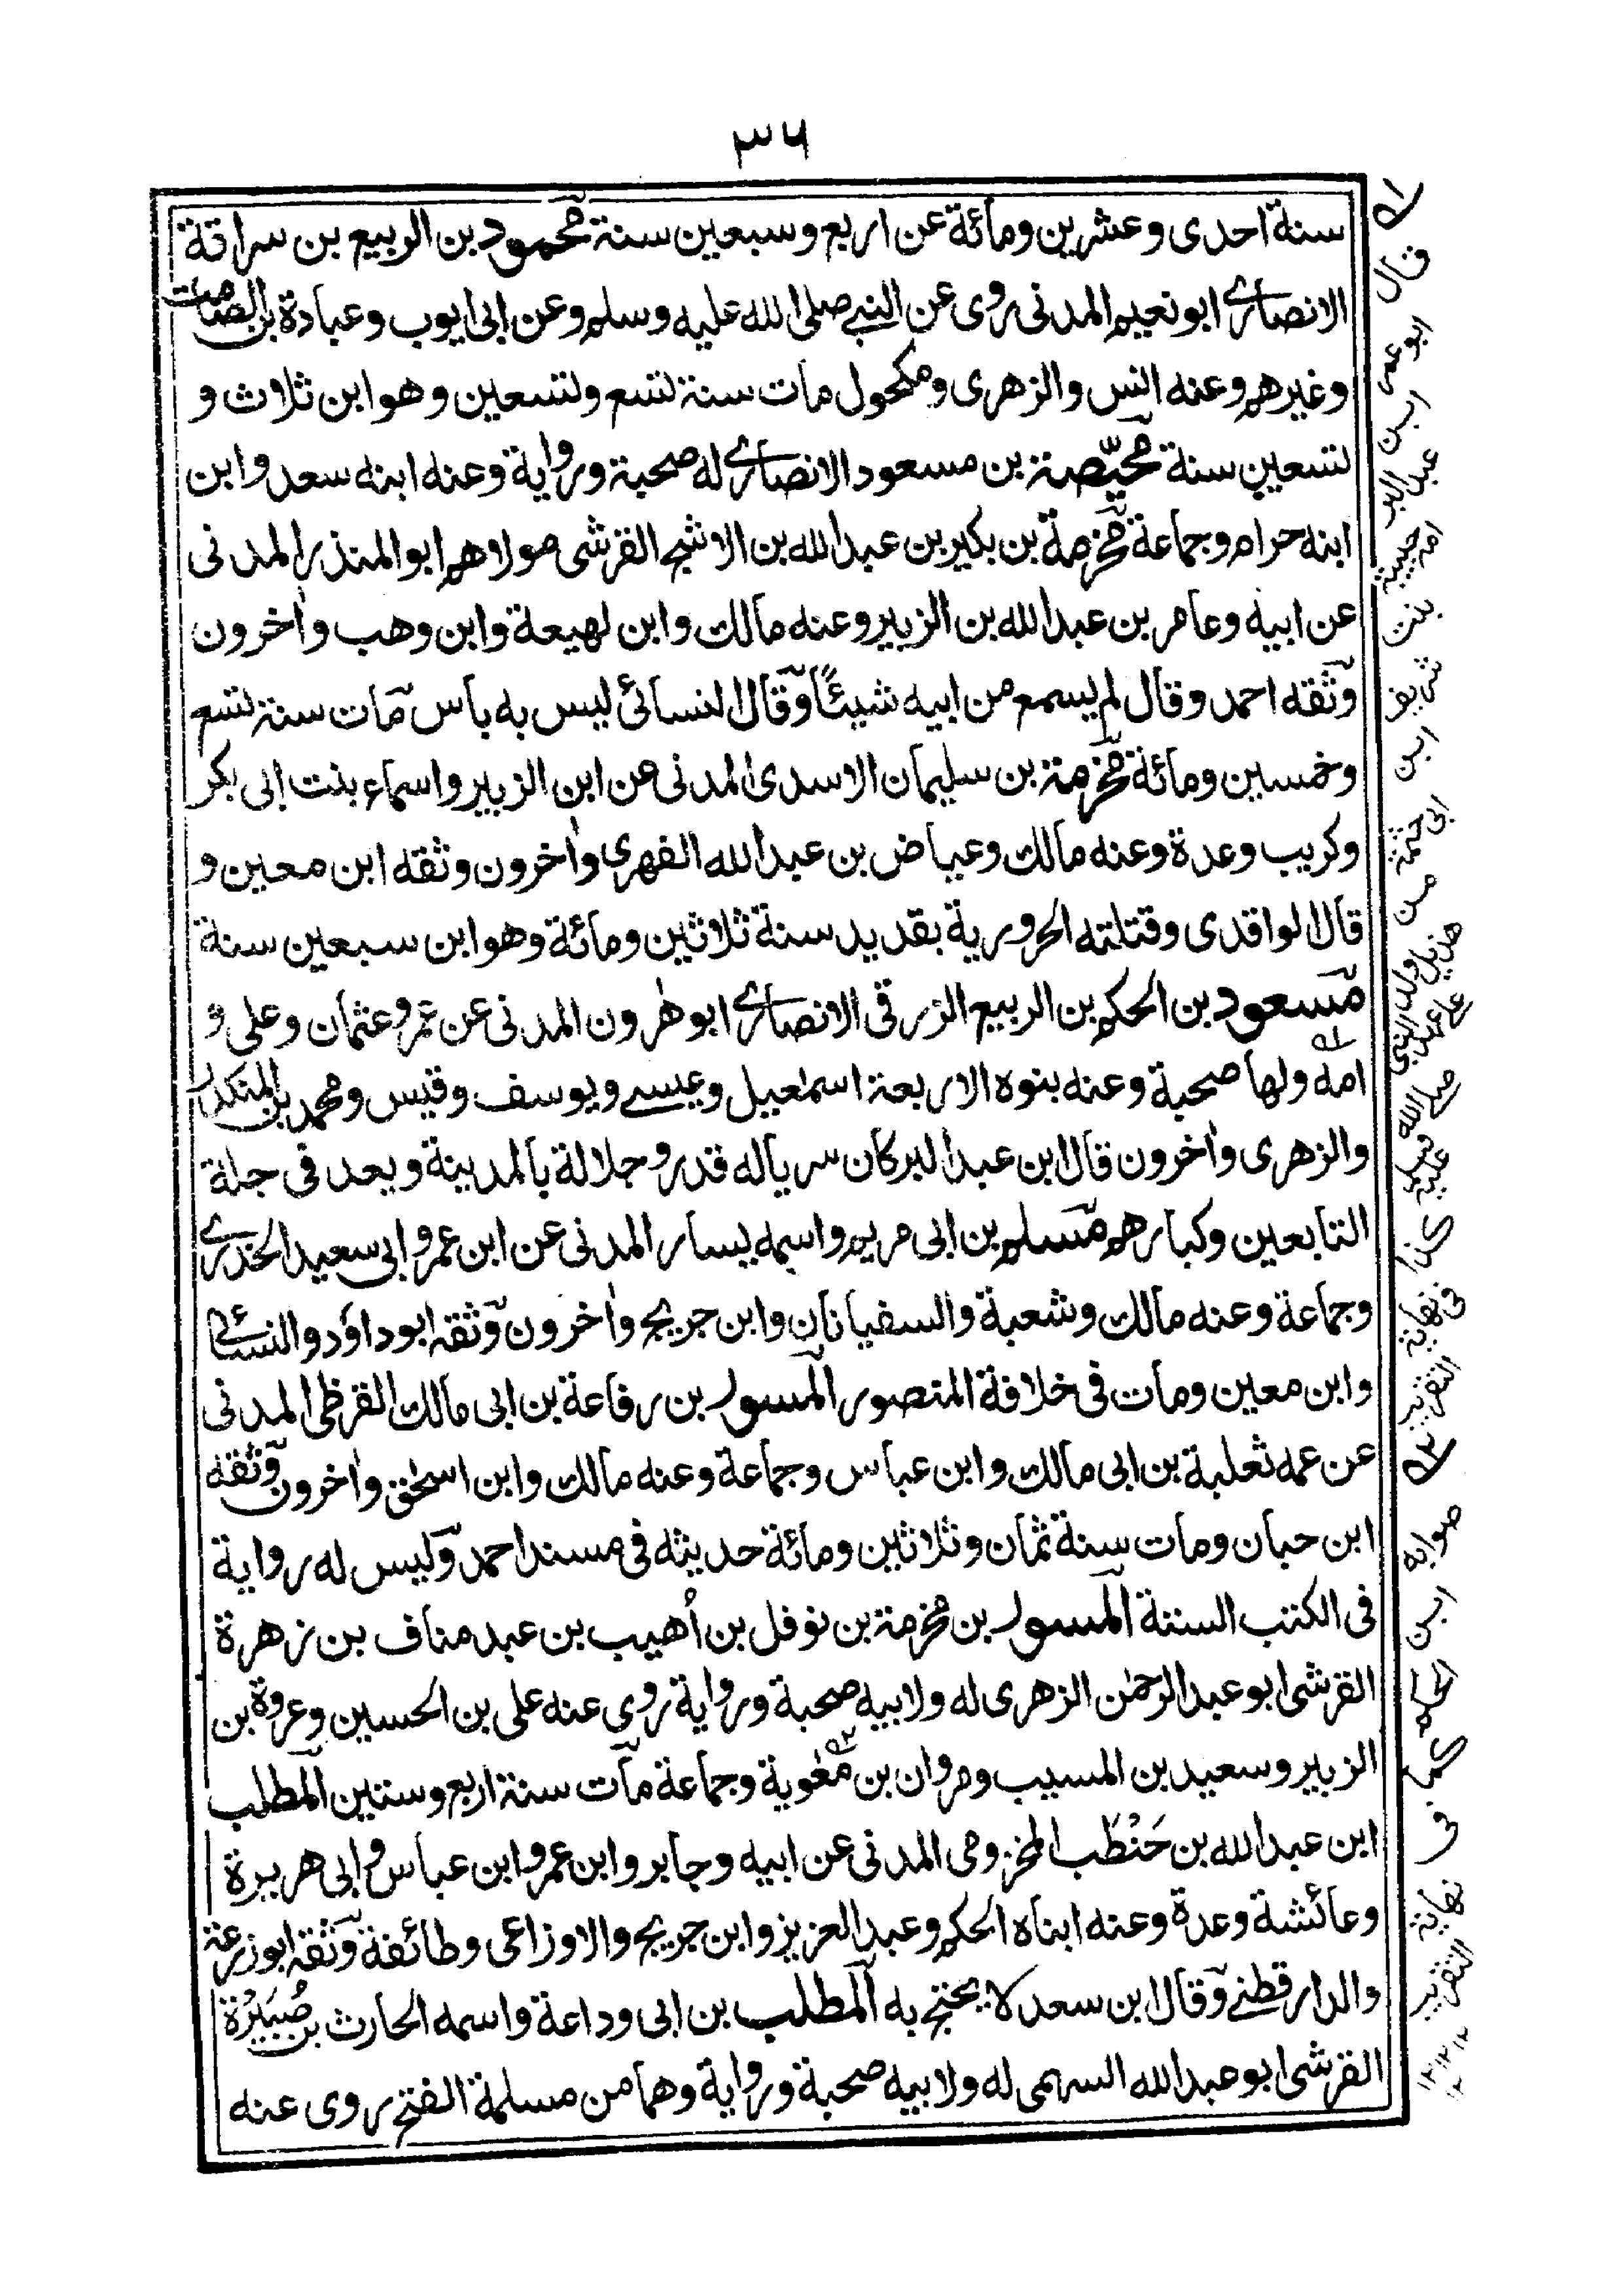 ٣٦
سنة احدى وعشرين ومائة عن اربع وسبعين سنة محمود بن الربيع بن سراقة
الانصاري ابو نعيم المدنى روى عن النبي صلى الله عليه وسلم وعن ابى ايوب وعبادة بن الصامت
وغيرهم وعنه انس والزهرى ومكحول مات سنة تسع وتسعين وهو ابن ثلاث و
تسعين سنة محيّصة بن مسعود الانصاري له صحبة ورواية وعنه ابنه سعد وابن
ابنه حرام وجماعة مخرمة بن بكير بن عبد الله بن الاشج القرشى مولاهم ابو المنذر المدنى
عن ابيه وعامر بن عبد الله بن الزبير وعنه مالك وابن لهيعة وابن وهب واٰخرون
وثقه احمد وقال لم يسمع من ابيه شيئًا وقال النسائى ليس به باس مات سنة تسع
وخمسين ومائة مخرمة بن سليمان الاسدى المدنى عن ابن الزبير واسماء بنت ابى بكر
وكريب وعدة وعنه مالك وعياض بن عبد الله الفهرى واٰخرون وثقه ابن معين و
قال الواقدى وقتلته الحرورية بقديد سنة ثلاثين ومائة وهو ابن سبعين سنة
مسعود بن الحكم بن الربيع الزرقى الانصاري ابو هٰرون المدنى عن عمر وعثمان وعلى و
امه ولها صحبة وعنه بنوه الاربعة اسمٰعيل وعيسے ويوسف وقيس ومحمد بن المنكدر
والزهرى واٰخرون قال ابن عبد البر كان سريا له قدر وجلالة بالمدينة ويعد فى جلة
التابعين وكبارهم مسلم بن ابى مريم واسمه يسار المدنى عن ابن عمر وابى سعيد الخدري
وجماعة وعنه مالك وشعبة والسفيانان وابن جريج واٰخرون وثقه ابو داود والنسائى
وابن معين ومات فى خلافة المنصور المسور بن رفاعة بن ابى مالك القرظى المدنى
عن عمه ثعلبة بن ابى مالك وابن عباس وجماعة وعنه مالك وابن اسحٰق واٰخرون وثقه
ابن حبان ومات سنة ثمان وثلاثين ومائة حديثه فى مسند احمد وليس له رواية
فى الكتب الستة المسور بن مخرمة بن نوفل بن أهيب بن عبد مناف بن زهرة
القرشى ابو عبد الرحمٰن الزهرى له ولابيه صحبة ورواية روى عنه على بن الحسين وعروة بن
الزبير وسعيد بن المسيب ومروان بن معٰوية وجماعة مات سنة اربع وستين المطلب
ابن عبد الله بن حَنْطَب المخزومى المدنى عن ابيه وجابر وابن عمر وابن عباس وابى هريرة
وعائشة وعدة وعنه ابناه الحكم وعبد العزيز وابن جريج والاوزاعى وطائفة وثقه ابو زرعة
والدارقطنے وقال ابن سعد لا يحتج به المطلب بن ابى وداعة واسمه الحارث بن صُبَيْرة
القرشى ابو عبد الله السهمى له ولابيه صحبة ورواية وهما من مسلمة الفتح روى عنه
لہ
قال
ابو عمر
ابن
عبد البر
امه حبيبة
بنت
شريق
ابن
ابى حثمة
من
هذيل ولد
على عهد النبى
صلى الله
عليه وسلم
كذا
فى نهاية
التقرير
صوابه
ابن
الحكم
كما
فى
نهاية
التقرير
١٢ ١٢ ١٢